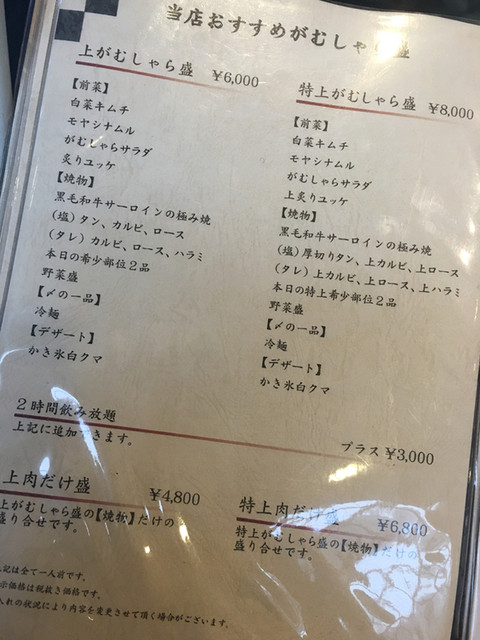 当店おすすめがむしゃら盛
上がむしゃら盛 ¥6,000
【前菜】
白菜キムチ
モヤシナムル
がむしゃらサラダ
炙りユッケ
【焼物】
黒毛和牛サーロインの極み焼
(塩)タン、カルビ、ロース
(タレ)カルビ、ロース、ハラミ
本日の希少部位2品
野菜盛
【〆の一品】
冷麺
【デザート】
かき氷白クマ
特上がむしゃら盛 ¥8,000
【前菜】
白菜キムチ
モヤシナムル
がむしゃらサラダ
上炙りユッケ
【焼物】
黒毛和牛サーロインの極み焼
(塩)厚切りタン、上カルビ、上ロース
(タレ)上カルビ、上ロース、上ハラミ
本日の特上希少部位2品
野菜盛
【〆の一品】
冷麺
【デザート】
かき氷白クマ
2時間飲み放題
上記に追加できます。 プラス¥3,000
上肉だけ盛 ¥4,800
上がむしゃら盛の【焼物】だけの
盛り合せです。
特上肉だけ盛 ¥6,800
特上がむしゃら盛の【焼物】だけの
盛り合せです。
記は全て一人前です。
示価格は税抜き価格です。
入れの状況により内容を変更させて頂く場合がございます。